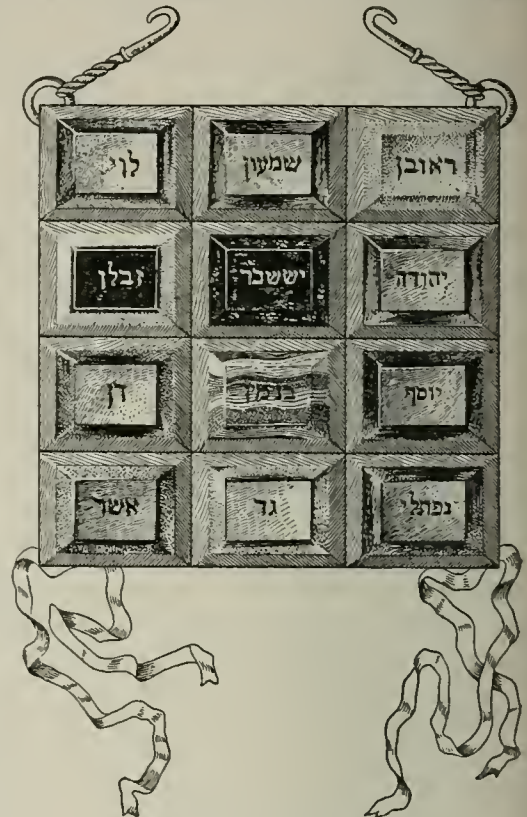 ראובן שמעון לוי
יהודה יששכר זבלן
יוסף בנימן דן
נפתלי גד אשר